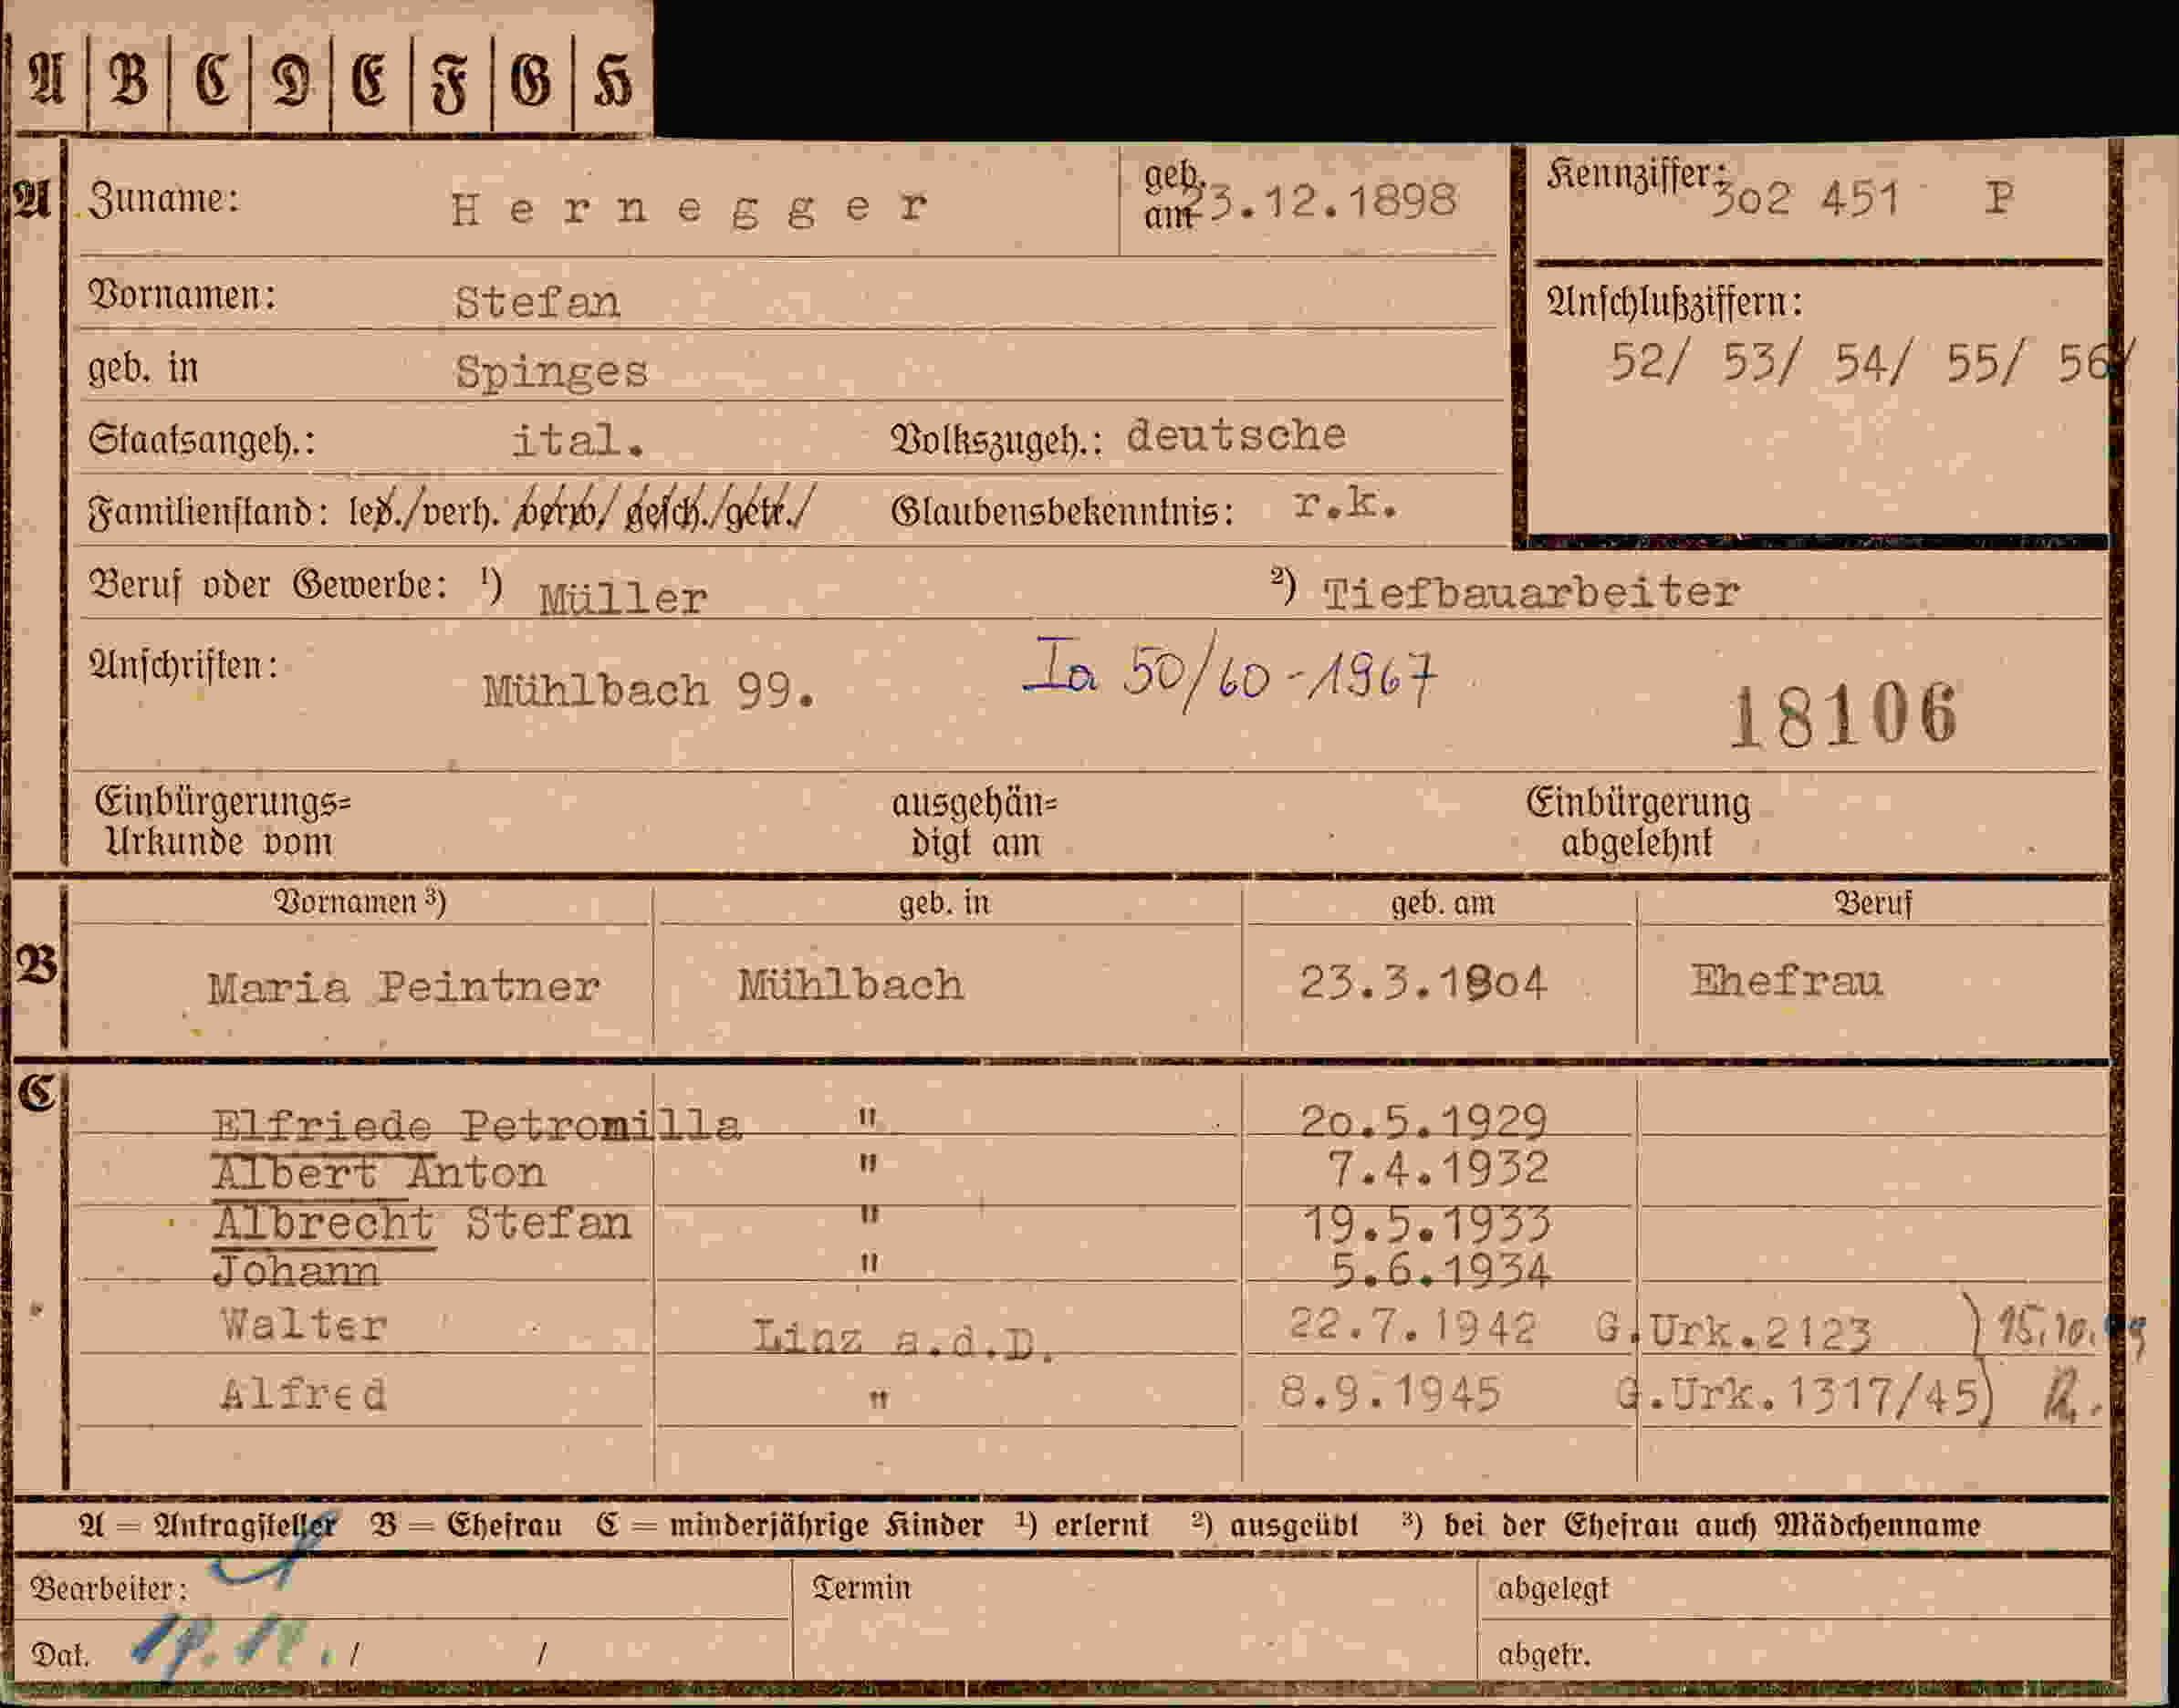 A B C D E F G H
A Zuname: Hernegger geb. am 23.12.1898 Kennziffer: 302 451 P
Vornamen: Stefan Anschlußziffern:
geb. in Spinges 52/ 53/ 54/ 55/ 56/
Staatsangeh.: ital. Volkszugeh.: deutsche
Familienstand: led./verh. verw/ gesch./getr./ Glaubensbekenntnis: r.k.
Beruf oder Gewerbe: ¹) Müller ²) Tiefbauarbeiter
Anschriften: Mühlbach 99. Ia 50/60-1967 18106
Einbürgerungs= ausgehän= Einbürgerung
Urkunde vom digt am abgelehnt
Vornamen ³) geb. in geb. am Beruf
B Maria Peintner Mühlbach 23.3.1904 Ehefrau
C
Elfriede Petromilla " 20.5.1929
Albert Anton " 7.4.1932
Albrecht Stefan " 19.5.1933
Johann " 5.6.1934
Walter Linz a.d.D. 22.7.1942 G.Urk.2123 ) 15.10.
Alfred " 8.9.1945 G.Urk.1317/45)
A = Antragsteller B = Ehefrau C = minderjährige Kinder ¹) erlernt ²) ausgeübt ³) bei der Ehefrau auch Mädchenname
Bearbeiter: Termin abgelegt
Dat. / / abgetr.